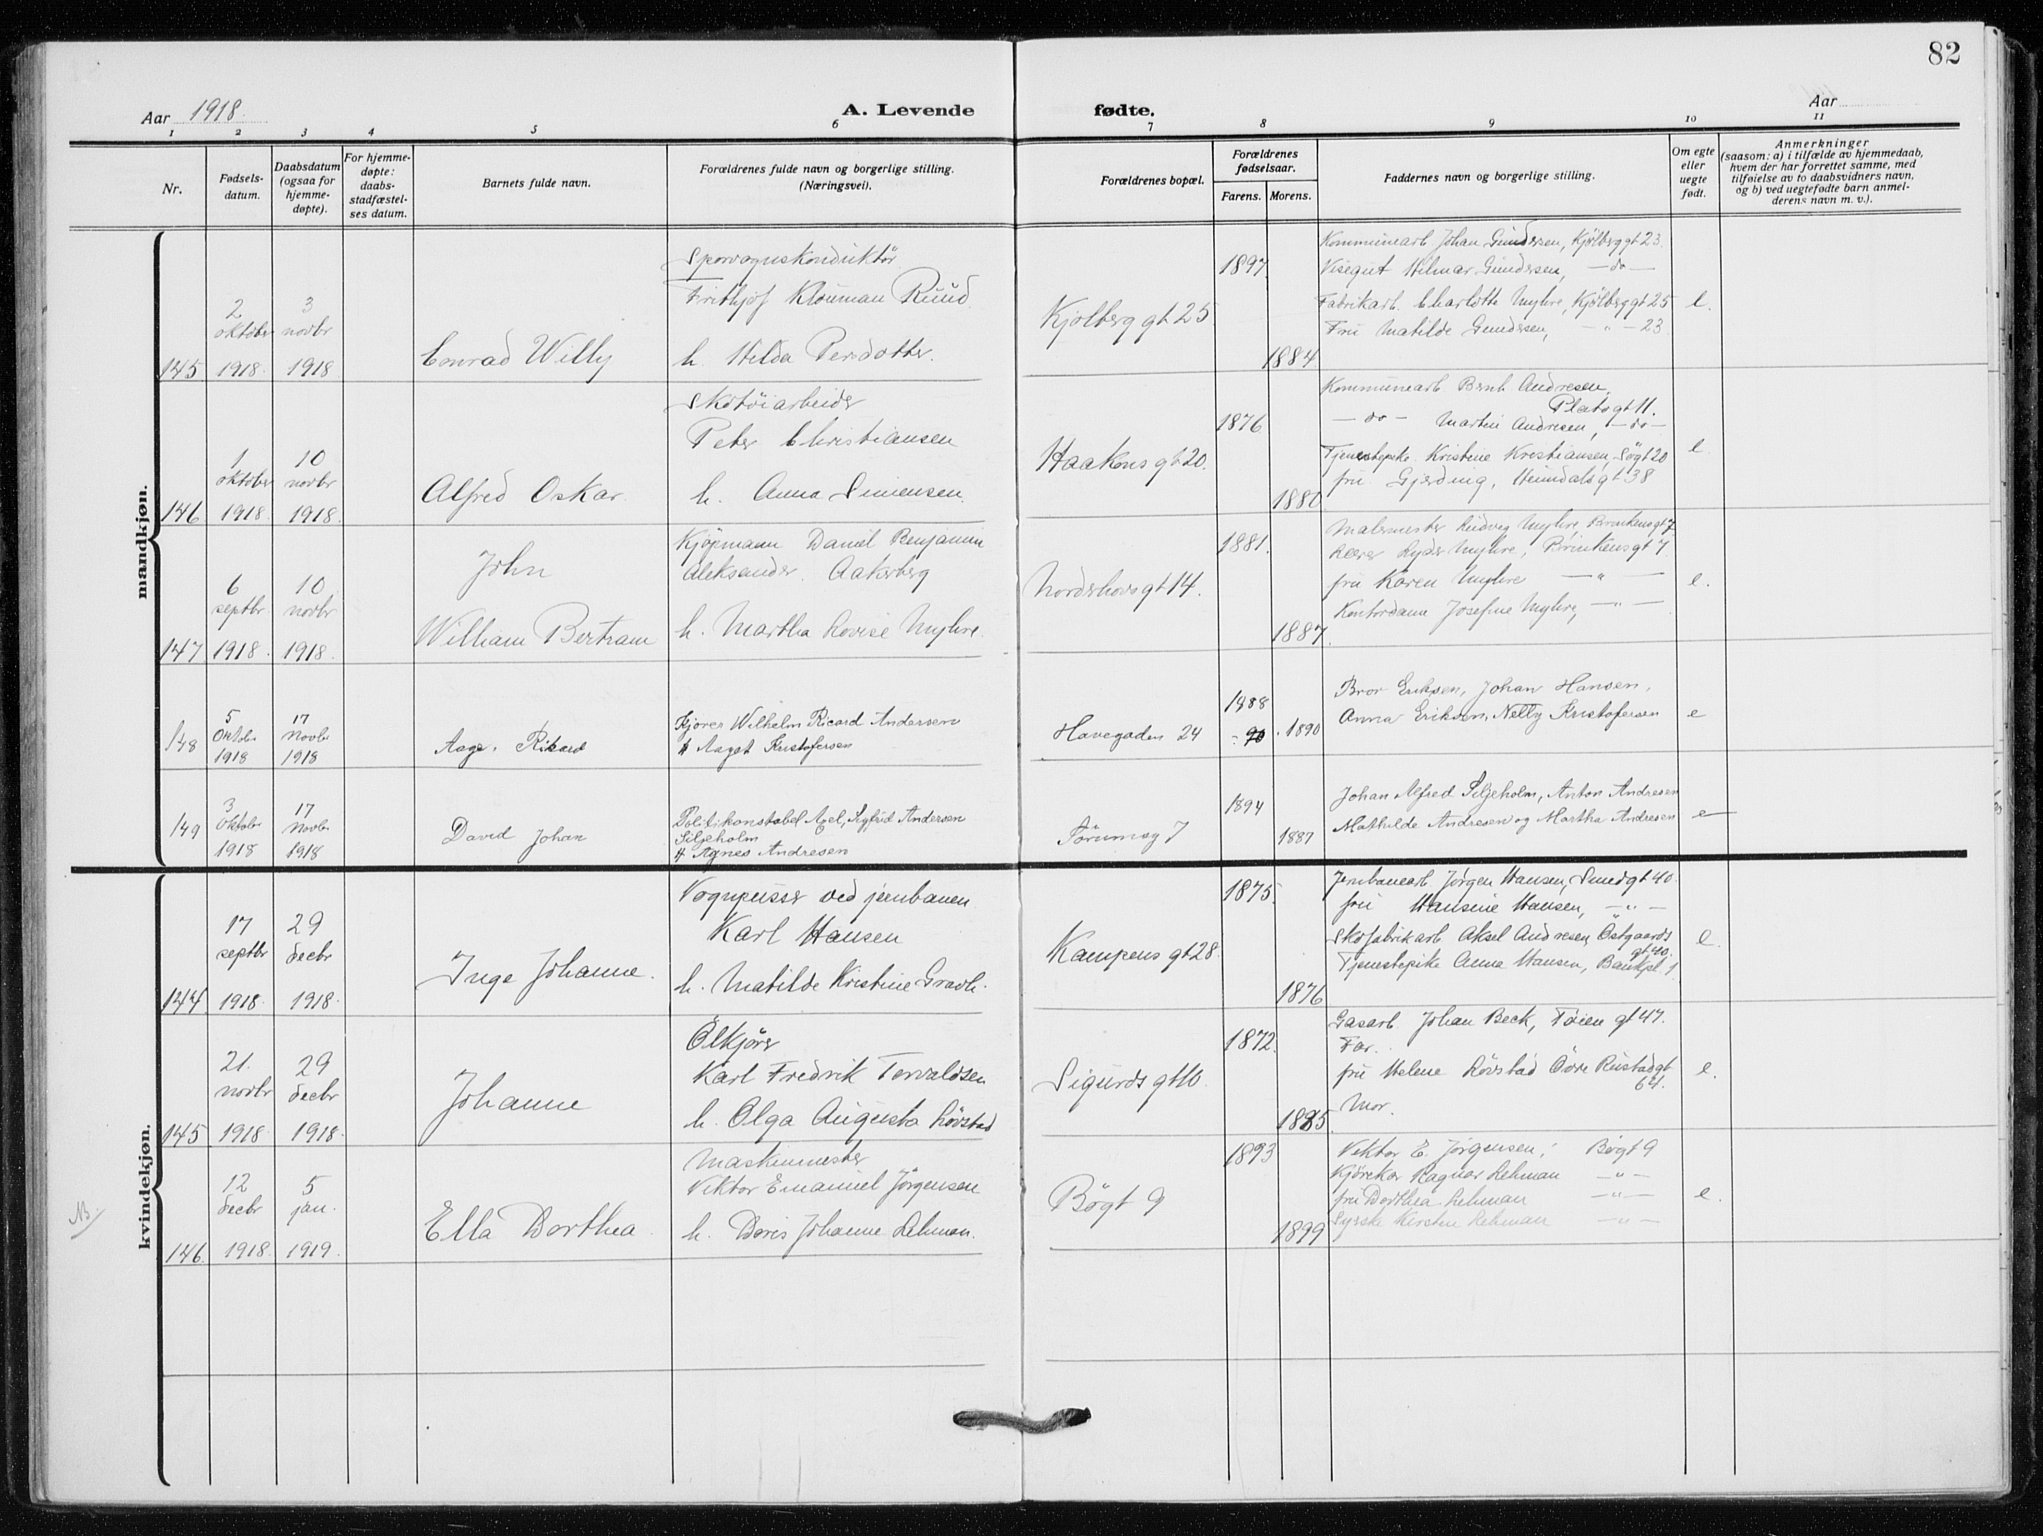 82
Aar 1918. A. Levende fødte. Aar
1 2 3 4 5 6 7 8 9 10 11
Nr. Fødselsdatum. Daabsdatum (ogsaa for hjemmedøpte). For hjemmedøpte: daabsstadfæstelses datum. Barnets fulde navn. Forældrenes fulde navn og borgerlige stilling. (Næringsvei). Forældrenes bopæl. Forældrenes fødselsaar. Farens. Morens. Faddernes navn og borgerlige stilling. Om egte eller uegte født. Anmerkninger (saasom: a) i tilfælde av hjemmedaab, hvem der har forrettet samme, med tilføielse av to daabsvidners navn, og b) ved uegtefødte barn anmelderens navn m. v.).
mandkjøn.
145 2 oktober 1918 3 novbr 1918
Conrad Willy
Sporvognskonduktör
Frithjof Klouman Ruud
h. Hilda Persdotter.
Kjølberg gt 25
1897
1884
Kommunearb Johan Gundersen, Kjølberg gt 23
Visegut Hilmar Gundersen, — do —
Fabrikarb. Charlotte Myhre, Kjølberg gt 25
Fru Matilde Gundersen, — " — 23
e.
146 1 oktober 1918 10 novbr 1918.
Alfred Oskar.
Skotöiarbeider
Peter Christiansen
h. Anna Simensen.
Haakons gt 20.
1876
1880
Kommunearb Bernh Andresen,
Platous gt 11.
— do — Martin Andresen, — do —
Tjenestepike Kristine Kristiansen, Søgt 20
fru Gjerding, Heimdals gt 38
e.
147 6 septbr 1918. 10 novbr 1918.
John
William Bertram
Kjøpmann Daniel Benjamin
Aleksander Aakerberg
h. Martha Lovise Myhre.
Nordshovs gt 14.
1881.
1887.
Malermester Ludvig Myhre, Brinkens gt 7
Lærer Lyder Myhre, Brinkens gt 7
fru Karen Myhre — " —
Kontordame Josefine Myhre, — " —
e.
148 5 Oktober 1918 17 Novbr 1918
Aage Rikard
Kjører Wilhelm Ricard Andersen
H Aagot Kristofersen
Havegaden 24
1888
1890
Bror Eriksen, Johan Hansen,
Anna Eriksen, Nelly Kristofersen
e
149 3 Oktober 1918 17 Novbr 1918
David Johan
Politikonstabel Axel, Sigfrid Andersen
Siljeholm
H Agnes Andresen
1894
1887
Johan Alfred Siljeholm, Anton Andresen
Mathilde Andresen og Martha Andresen
e
kvindekjøn.
144 17 septbr 1918. 29 decbr 1918.
Inge Johanne.
Vognpusser ved jernbanen
Karl Hansen
h. Matilde Kristine Gravli.
Kampens gt 28.
1875.
1876
Jernbanearb Jørgen Hansen, Smedgt 40.
fru Hansine Hansen, — " —
Skofabrikarb Aksel Andresen, Östgaards
gt 40.
Tjenestepike Anna Hansen, Bankpl 1
e.
145 21. novbr 1918. 29 decbr 1918.
Johanne
Ölkjörer
Karl Fredrik Torvaldsen
h. Olga Augusta Lövstad
Sigurds gt 10.
1872.
1885.
Gasarb. Johan Beck, Tøien gt 47.
Far.
fru Helene Lövstad Övre Rustadgt
64.
Mor.
e.
NB/
146 12 decbr 1918. 5 jan. 1919.
Ella Dorthea.
Maskinmester
Viktor Emanuel Jörgensen
h. Doris Johanne Lehman.
Bögt 9
1893
1899
Viktor E. Jørgensen, Bøgt 9
Kjørekar Ragnar Lehman — " —
fru Dorthea Lehman — " —
Syerske Kirsten Lehman — " —
e.